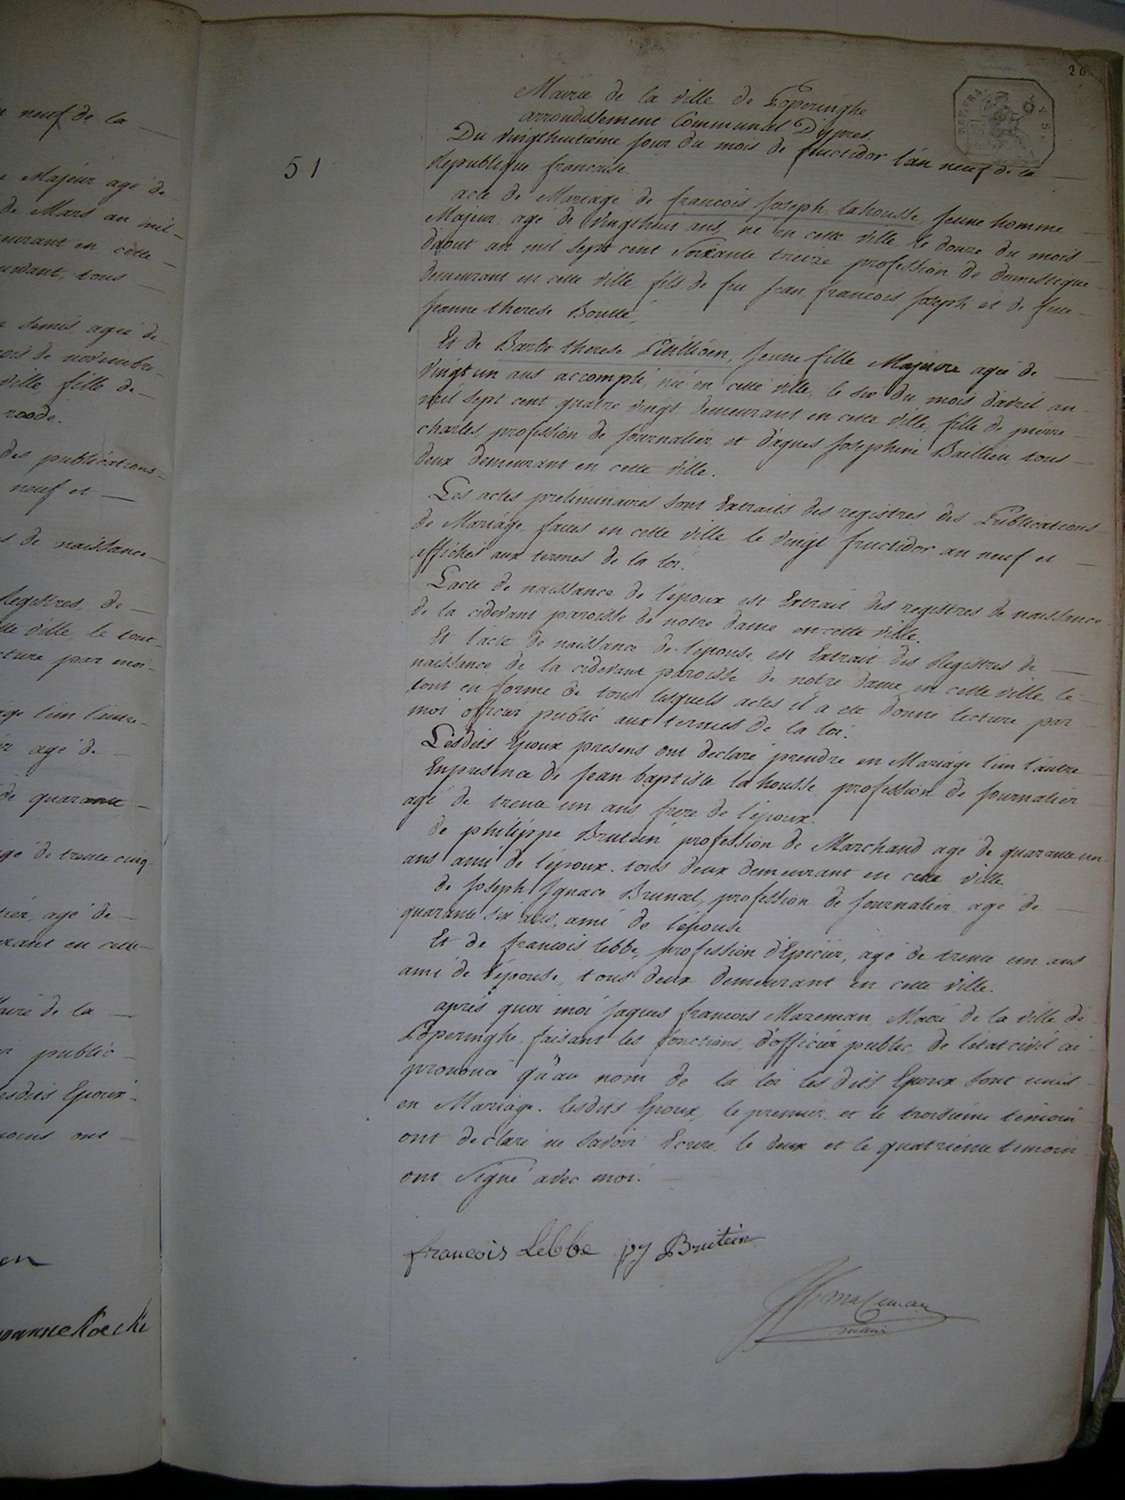 n neuf de la
e Majeur agé de
de Mars an mil
eurant en cette
vivant, tous
e semis agée de
ers de novembre
ville, fille de
roode.
des publications
neuf et
s de naissance
Registres de
tte ville, le tout
cture par moi
age l'un l'autre
ér agé de
de quarante
agé de trente cinq
ier, agé de
urant en cette
Mairé de la
er public
esdits Epoux
moins ont
en
26
51
Mairie de la ville de Poperinghe
arrondissement Communal D'ipres
Du vingthuitième jour du mois de fructidor l'an neuf de la
Republique francaise.
acte de Mariage de francois Joseph Lahousse, Jeune homme
Majeur, agé de vingthuit ans, né en cette ville le douze du mois
daout an mil sept cent soixante treize profession de domestique
demeurant en cette ville, fils de feu Jean francois Joseph et de feue
Jeanne therese Boutté,
Et de Barbe therese Petillion, Jeune fille Majeure agée de
vingt un ans accompli, née en cette ville, le six du mois davril an
mil sept cent quatre vingt demeurant en cette ville, fille de pierre
charles profession de Journalier et d'agnes Josephine Baillieu tous
deux demeurant en cette ville.
Les actes preliminaires sont Extraits des registres des Publications
de Mariage faites en cette ville le vingt fructidor an neuf et
affichés aux termes de la loi.
L'acte de naissance de l'époux est Extrait des registres de naissance
de la cidevant paroisse de notre dame en cette ville.
Et l'acte de naissance de l'epouse est Extrait des Registres de
naissance de la cidevant paroisse de notre dame en cette ville, le
tout en forme de tous lesquels actes il a ete donné lecture par
moi officier public aux termes de la loi.
Lesdits Epoux presens ont declaré prendre en Mariage l'un l'autre
Enpresence de Jean baptiste lahousse profession de Journalier
agé de trente un ans frere de l'époux.
de philippe Brutein profession de Marchand agé de quarante un
ans ami de l'époux. tous deux demeurant en cette ville
de Joseph Ignace Bruneel, profession de Journalier agé de
quarante six ans, ami de l'épouse
Et de francois lebbe, profession d'Epicier, agé de trente un ans
ami de l'épouse, tous deux demeurant en cette ville.
après quoi moi Jaques francois Mazeman, Maire de la ville de
Poperinghe faisant les fonctions d'officier public de l'etat civil ai
prononcé qu'au nom de la loi lesdits Epoux sont unis
en Mariage. Lesdits Epoux, le premier et le troisieme temoin
ont declaré ne savoir Ecrire, le deux et le quatrieme temoin
ont Signé avec moi.
francois Lebbe pj Brutein
Mazeman
maire